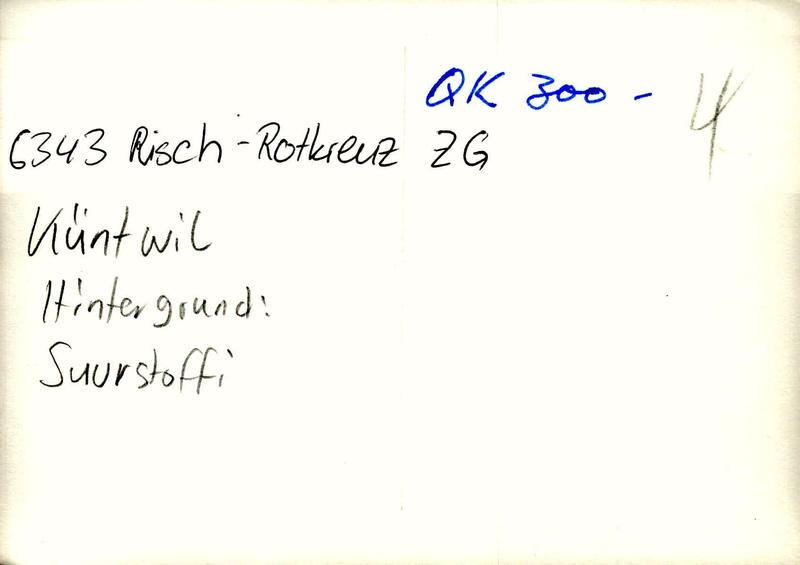 QK 300 -
4
6343 Risch-Rotkreuz ZG
Küntwil
Hintergrund:
Suurstoffi